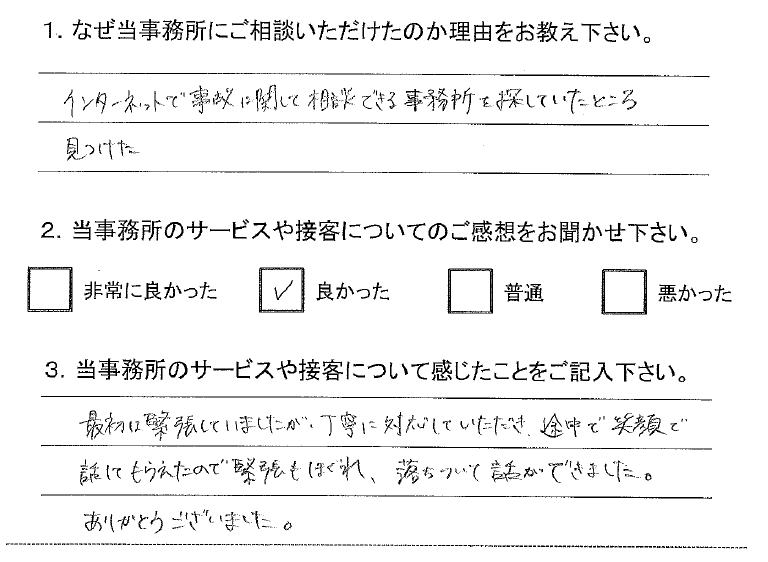 1. なぜ当事務所にご相談いただけたのか理由をお教え下さい。
インターネットで事故に関して相談できる事務所を探していたところ
見つけた
2. 当事務所のサービスや接客についてのご感想をお聞かせ下さい。
非常に良かった ✓ 良かった 普通 悪かった
3. 当事務所のサービスや接客について感じたことをご記入下さい。
最初は緊張していましたが、丁寧に対応していただき、途中で笑顔で
話してもらえたので緊張もほぐれ、落ちついて話ができました。
ありがとうございました。